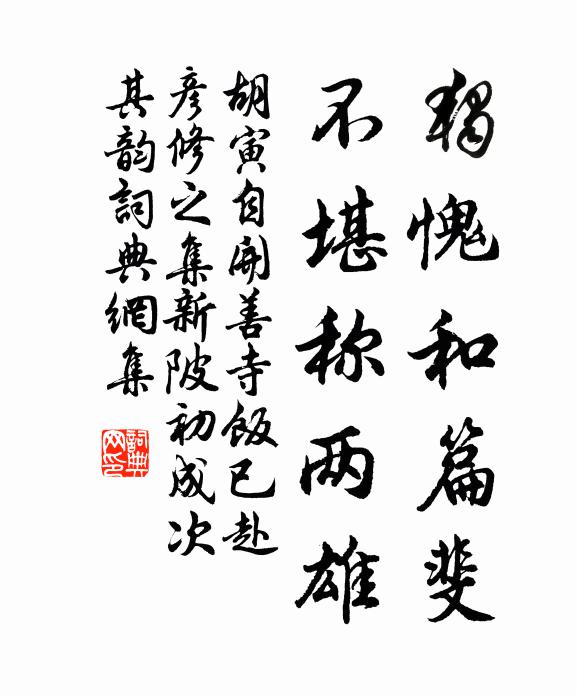 独愧和篇斐
不堪称两雄
胡寅自開善寺飯已赴
彦修之集新陂初成次
其韵詞典網集
詞典
网印